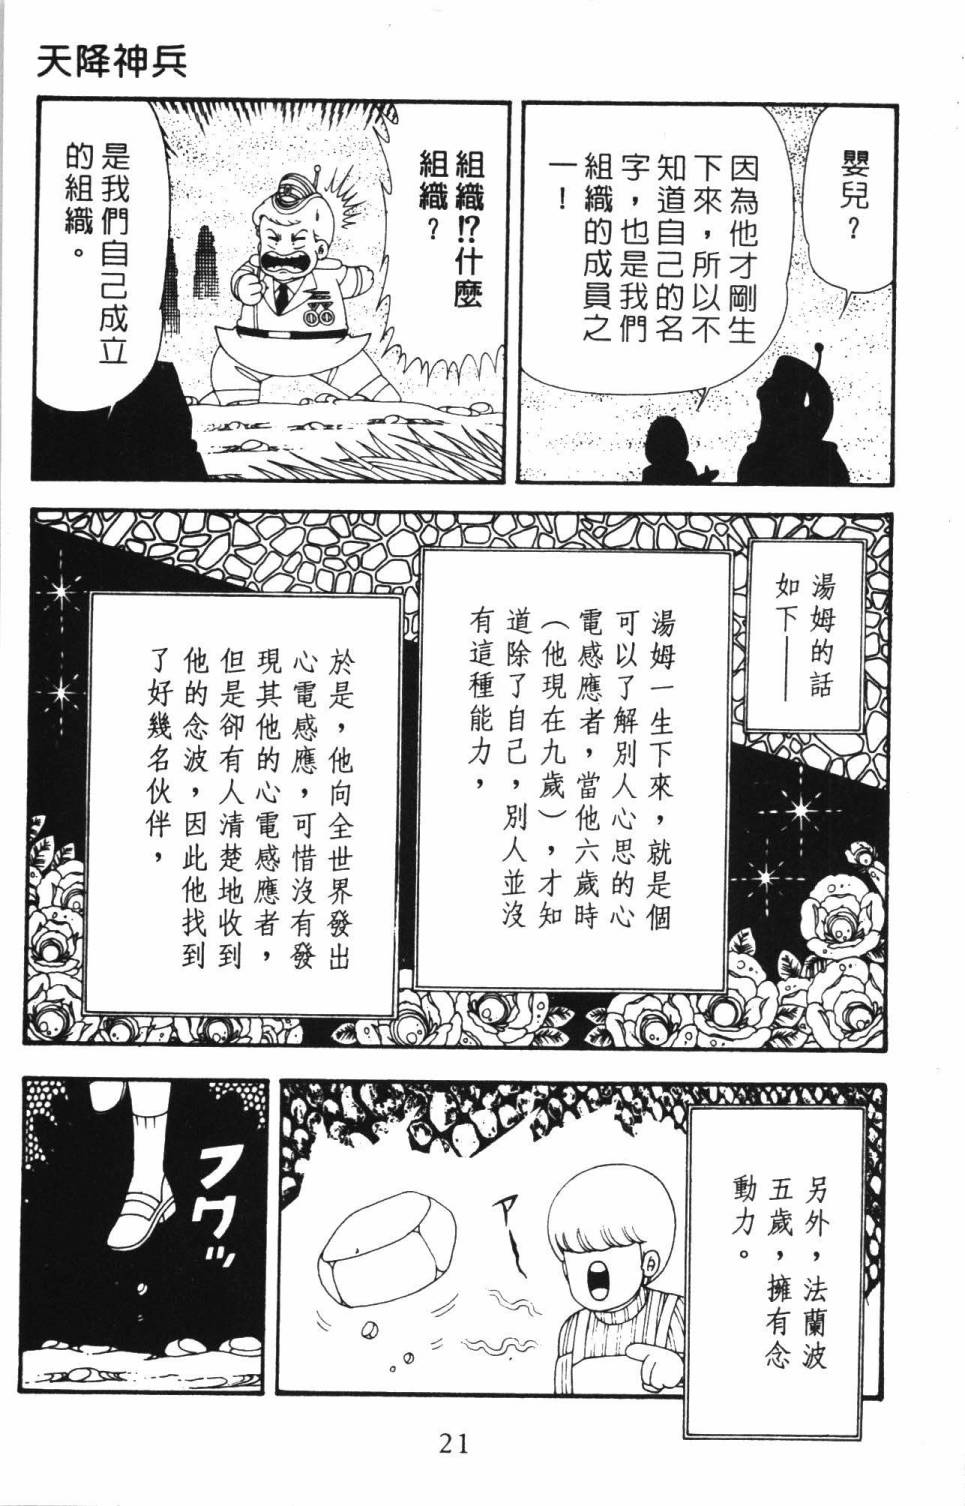 天降神兵
嬰兒？
因為他才剛生
下來，所以不
知道自己的名
字，也是我們
組織的成員之
一！
組織!?什麼
組織？
是我們自己成立
的組織。
湯姆的話
如下——
湯姆一生下來，就是個
可以了解別人心思的心
電感應者，當他六歲時
（他現在九歲），才知
道除了自己，別人並沒
有這種能力，
於是，他向全世界發出
心電感應，可惜沒有發
現其他的心電感應者，
但是卻有人清楚地收到
他的念波，因此他找到
了好幾名伙伴，
另外，法蘭波
五歲，擁有念
動力。
アー
フワッ
21